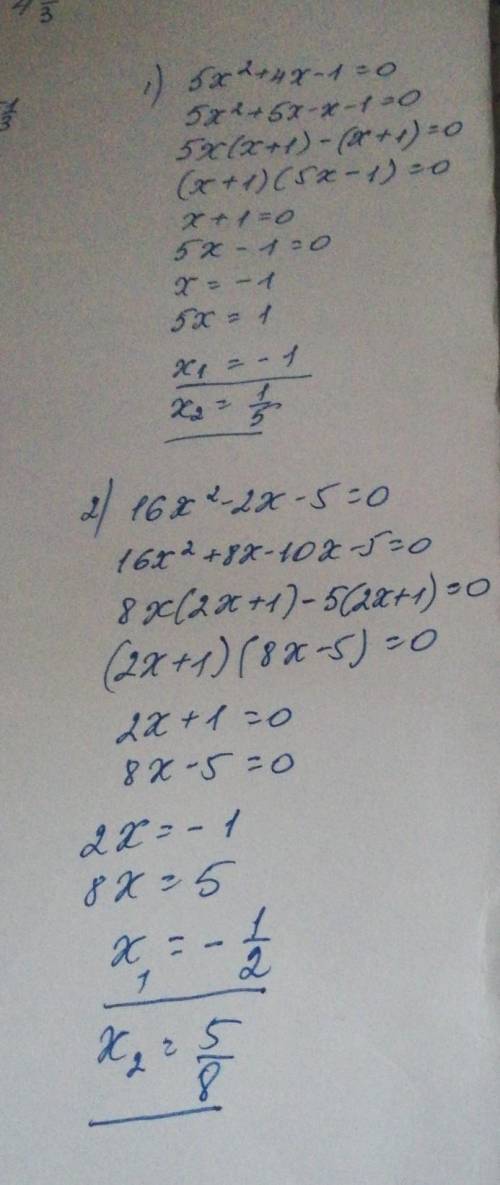 1) 5x²+4x-1=0
5x²+5x-x-1=0
5x(x+1)-(x+1)=0
(x+1)(5x-1)=0
x+1=0
5x-1=0
x=-1
5x=1
x₁=-1
x₂=1/5
2) 16x²-2x-5=0
16x²+8x-10x-5=0
8x(2x+1)-5(2x+1)=0
(2x+1)(8x-5)=0
2x+1=0
8x-5=0
2x=-1
8x=5
x₁=-1/2
x₂=5/8